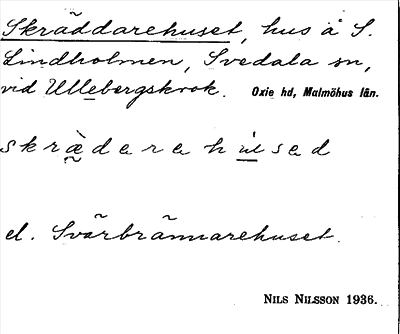 Skräddarehuset, hus å S.
Lindholmen, Svedala sn,
vid Ullebergskrok. Oxie hd, Malmöhus län.
skræ̀derehused
el. Svarbrännarehuset.
NILS NILSSON 1936.